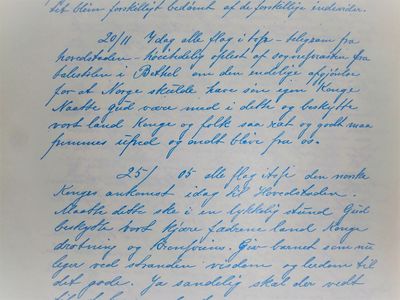 det bleiv forskelligt bedømt af de forskellige individer.
20/11 Idag alle flag itop - telegram fra
hovedstaden - høitidelig oplest af sognepræsten fra
balestolen i Bethel om den endelige afgjørelse
for at Norge skulde have sin egen Konge
Maatte Gud være med i dette og beskytte
vort land Konge og folk saa ret og godt maa
fremmes ufred og ondt blive fra os.
25/ 05 alle flag itop den norske
Konges ankomst idag til Hovedstaden.
Maatte dette ske i en lykkelig stund Gud
beskytte vort kjære fædrene land Konge
drotning og Kronprins. Giv barnet som nu
leger ved stranden visdom og lerdom til
det gode. Ja sandelig skal der vedt